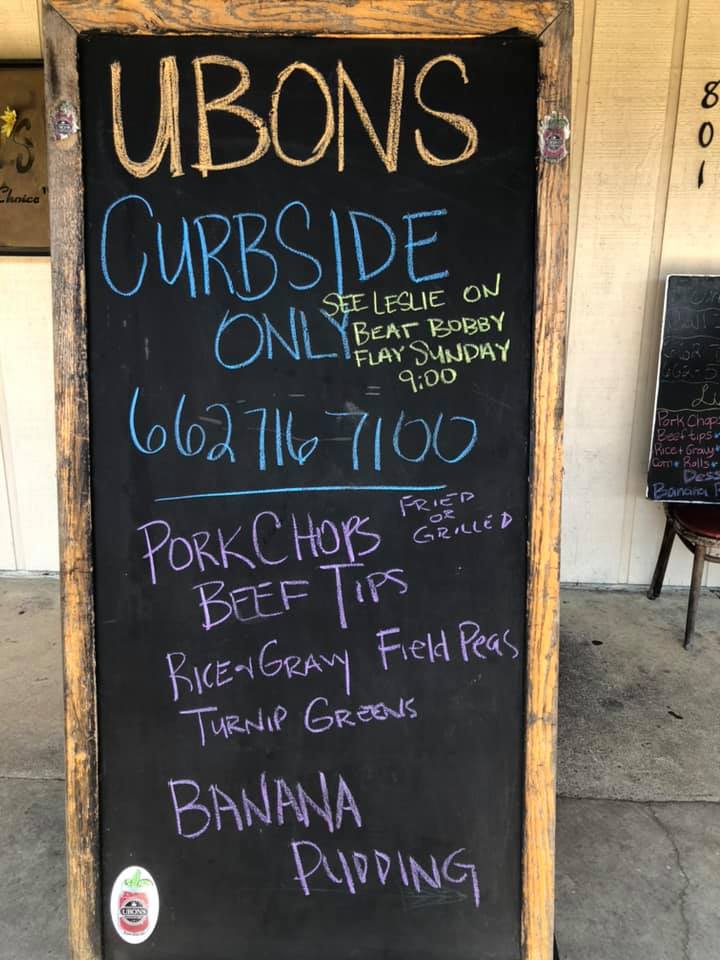 UBONS
CURBSIDE
ONLY
SEE LESLIE ON
BEAT BOBBY
FLAY SUNDAY
9:00
662 716 7100
PORK CHOPS
FRIED
OR
GRILLED
BEEF TIPS
RICE & GRAVY FIELD PEAS
TURNIP GREENS
BANANA
PUDDING
UBONS
801
Choice"
Pork Chop
Beef tips
Rice + Gravy
Corn Rolls
Des
Banana P